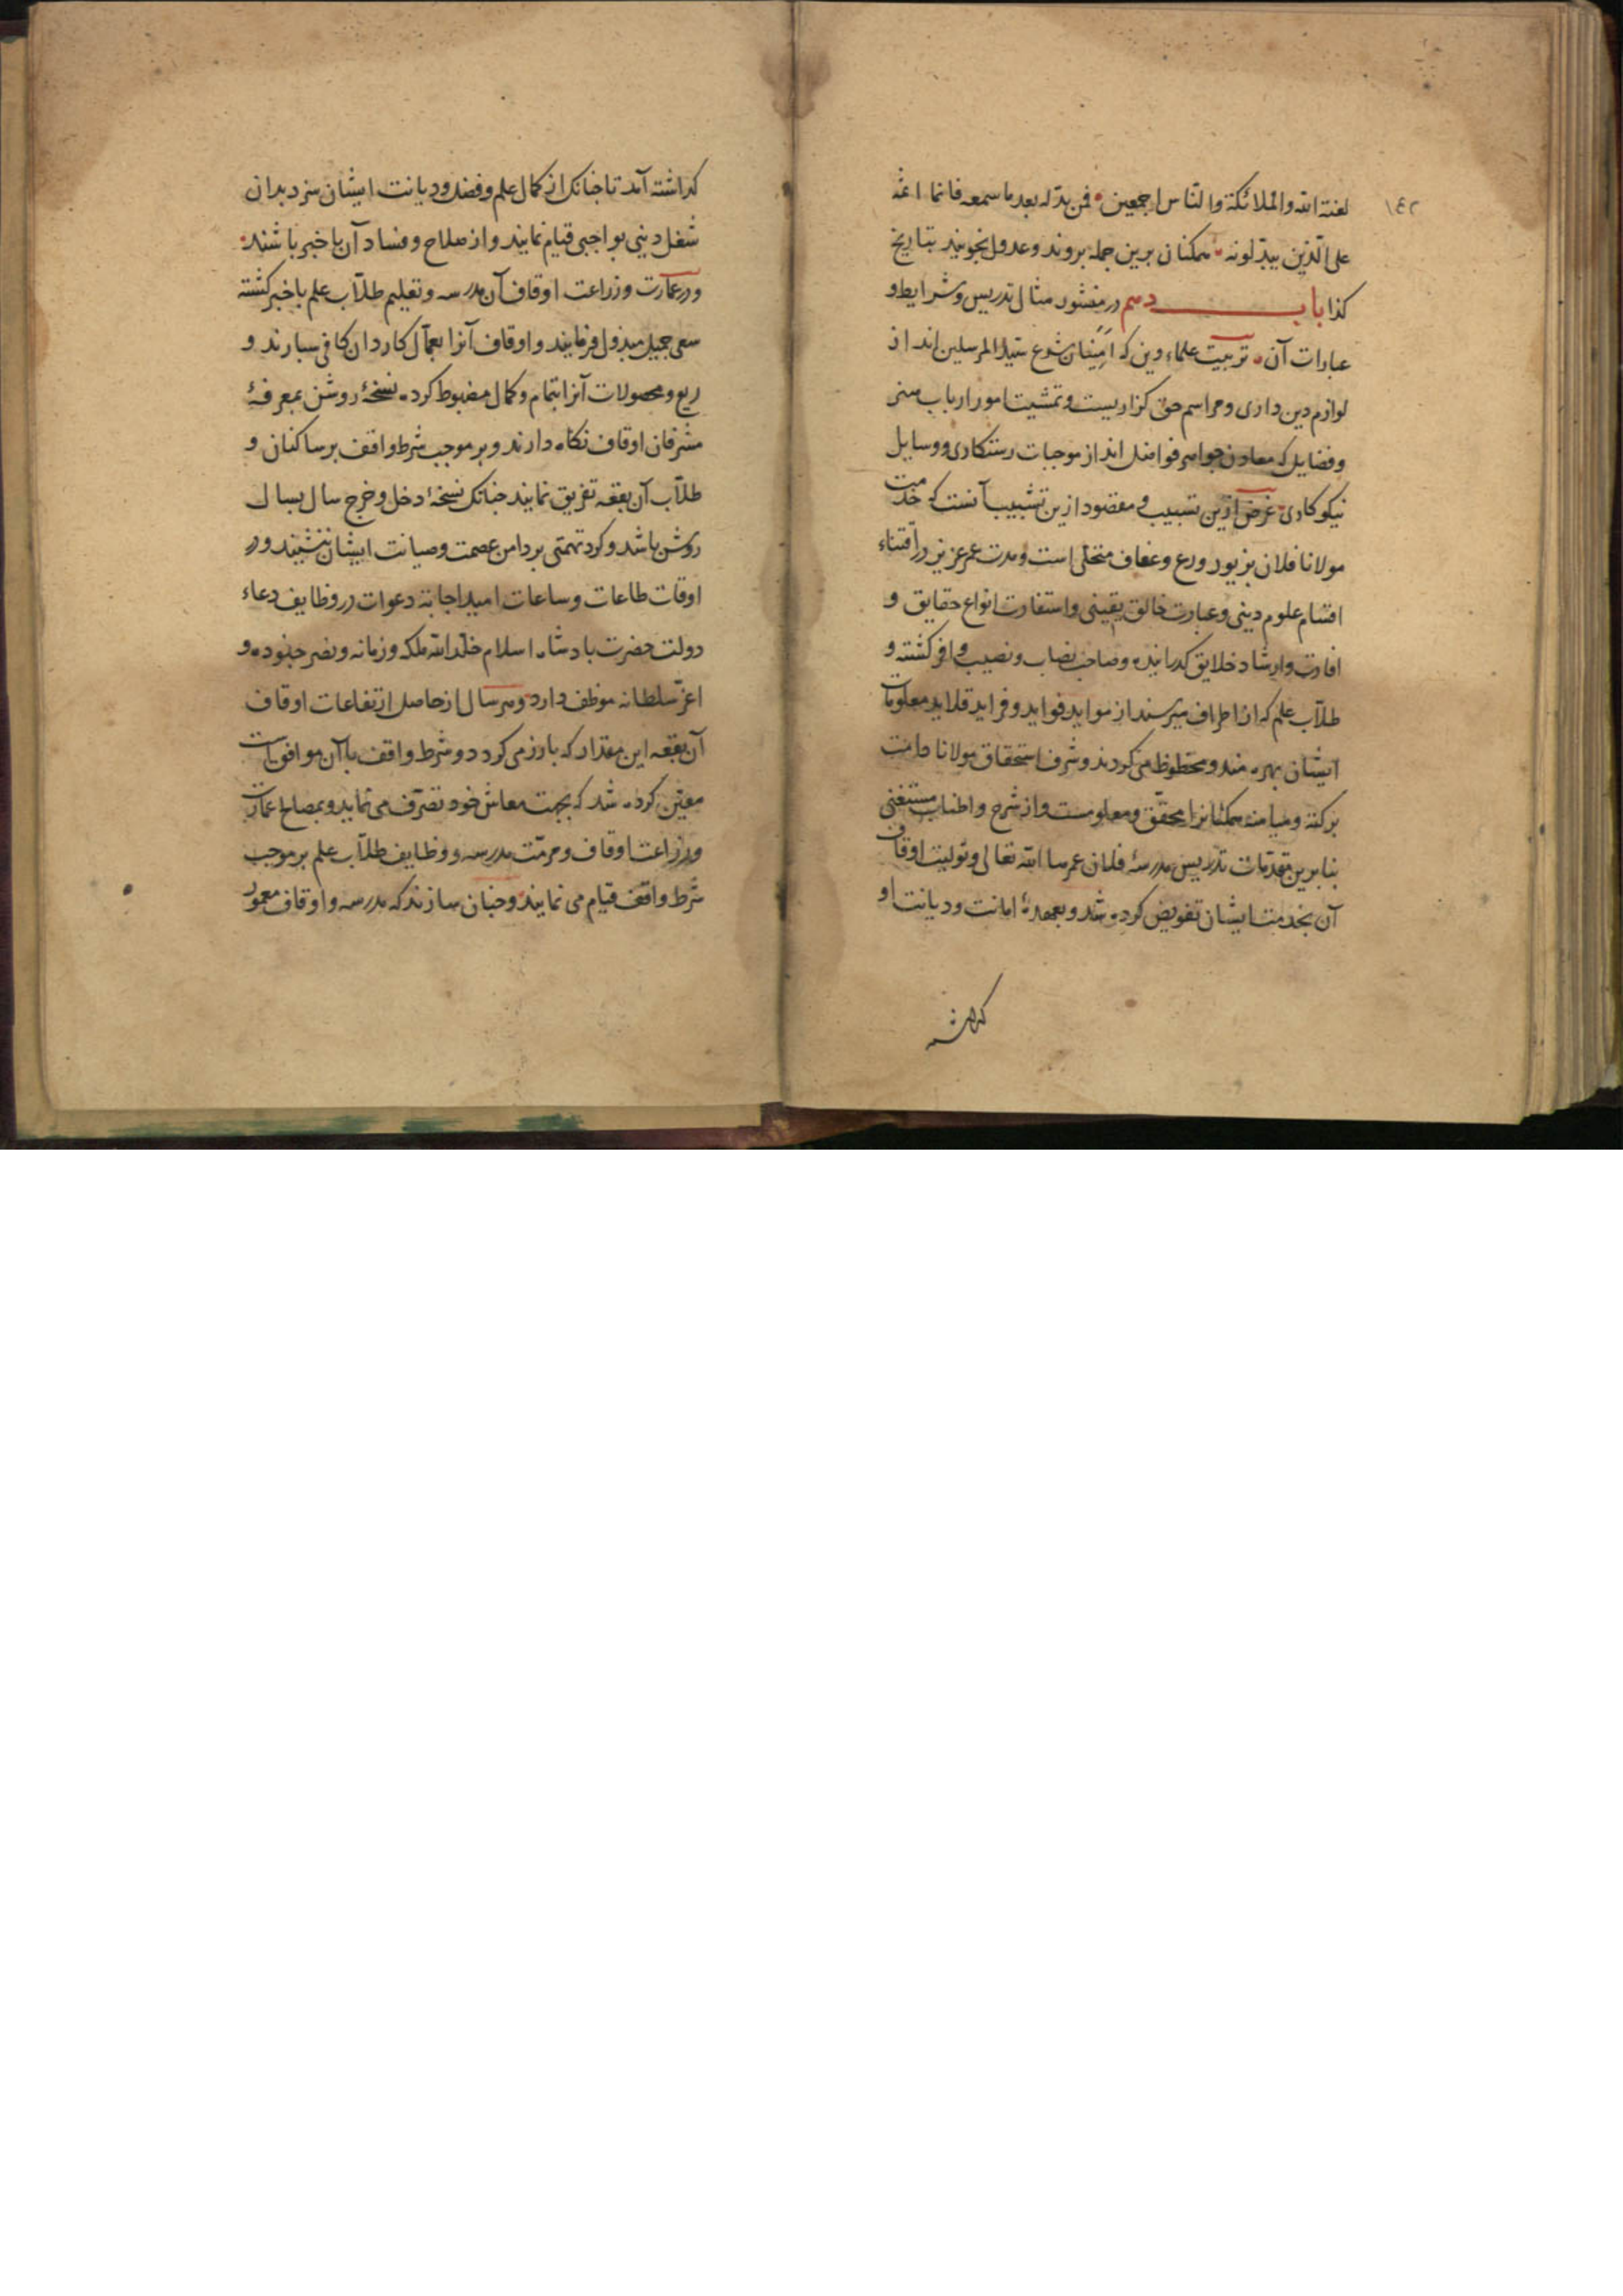 ١٤٢
لعنة الله والملائكة والناس اجمعين فمن بدله بعد ما سمعه فانما اثمه
على الذين يبدلونه همكنان برين جمله بروند وعدول نجويند بتاريخ
كذا باب دهم در منشور مثال تدريس وشرايط و
عبارات آن تربيت علماء دين كه امينان شرع سيد المرسلين اند از
لوازم دين دارى ومراسم حق كزاريست وتمشيت امور ارباب هنر
وفضايل كه معادن جواهر فواضل اند از موجبات رستكارى ووسايل
نيكو كارى غرض ازين تسبيب و مقصود ازين تشبيب آنست كه خدمت
مولانا فلان بزيور ورع وعفاف متحلى است ومدت عمر عزيز در اقتناء
اقسام علوم دينى وعبادت خالق يقينى واستفادت انواع حقايق و
افادت وارشاد خلايق كذرانيده وصاحب نصاب ونصيب وافر كشته و
طلاب علم كه از اطراف ميرسند از موايد فوايد وفرايد قلايد معلومات
ايشان بهره مند ومحظوظ مى كردند وشرف استحقاق مولانا دامت
بركته وميامنه همكنانرا محقق ومعلومست واز شرح واطناب مستغنى
بنا برين مقدمات تدريس مدرسۀ فلان عمرها الله تعالى وتوليت اوقاف
آن بخدمت ايشان تفويض كرده شد وبعهدۀ امانت وديانت او
كذاشته
كذاشته آمد تا جنانك از كمال علم وفضل وديانت ايشان سزد بدان
شغل دينى بواجبى قيام نمايند واز صلاح وفساد آن با خبر باشند
ودر عمارت وزراعت اوقاف آن مدرسه وتعليم طلاب علم با خبر كشته
سعى جميل مبذول فرمايند واوقاف آنرا بعمال كاردان كافى سبارند و
ريع ومحصولات آنرا بتمام وكمال مضبوط كرده نسخۀ روشن بمعرفۀ
مشرفان اوقاف نكاه دارند وبر موجب شرط واقف بر ساكنان و
طلاب آن بقعه تفريق نمايند جنانك نسخۀ دخل وخرج سال بسال
روشن باشد وكرد تهمتى بر دامن عصمت وصيانت ايشان ننشيند ودر
اوقات طاعات وساعات اميد اجابة دعوات در وظايف دعاء
دولت حضرت بادشاه اسلام خلد الله ملكه وزمانه ونصر جنوده و
اعز سلطانه موظف دارد وهر سال از حاصل ارتفاعات اوقاف
آن بقعه اين مقدار كه بارز مى كردد وشرط واقف با آن موافق است
معين كرده شد كه بجهت معاش خود تصرف مى نمايد وبمصالح عمارت
وزراعت اوقاف ومرمت مدرسه ووظايف طلاب علم بر موجب
شرط واقف قيام مى نمايند وجنان سازند كه مدرسه واوقاف معمور